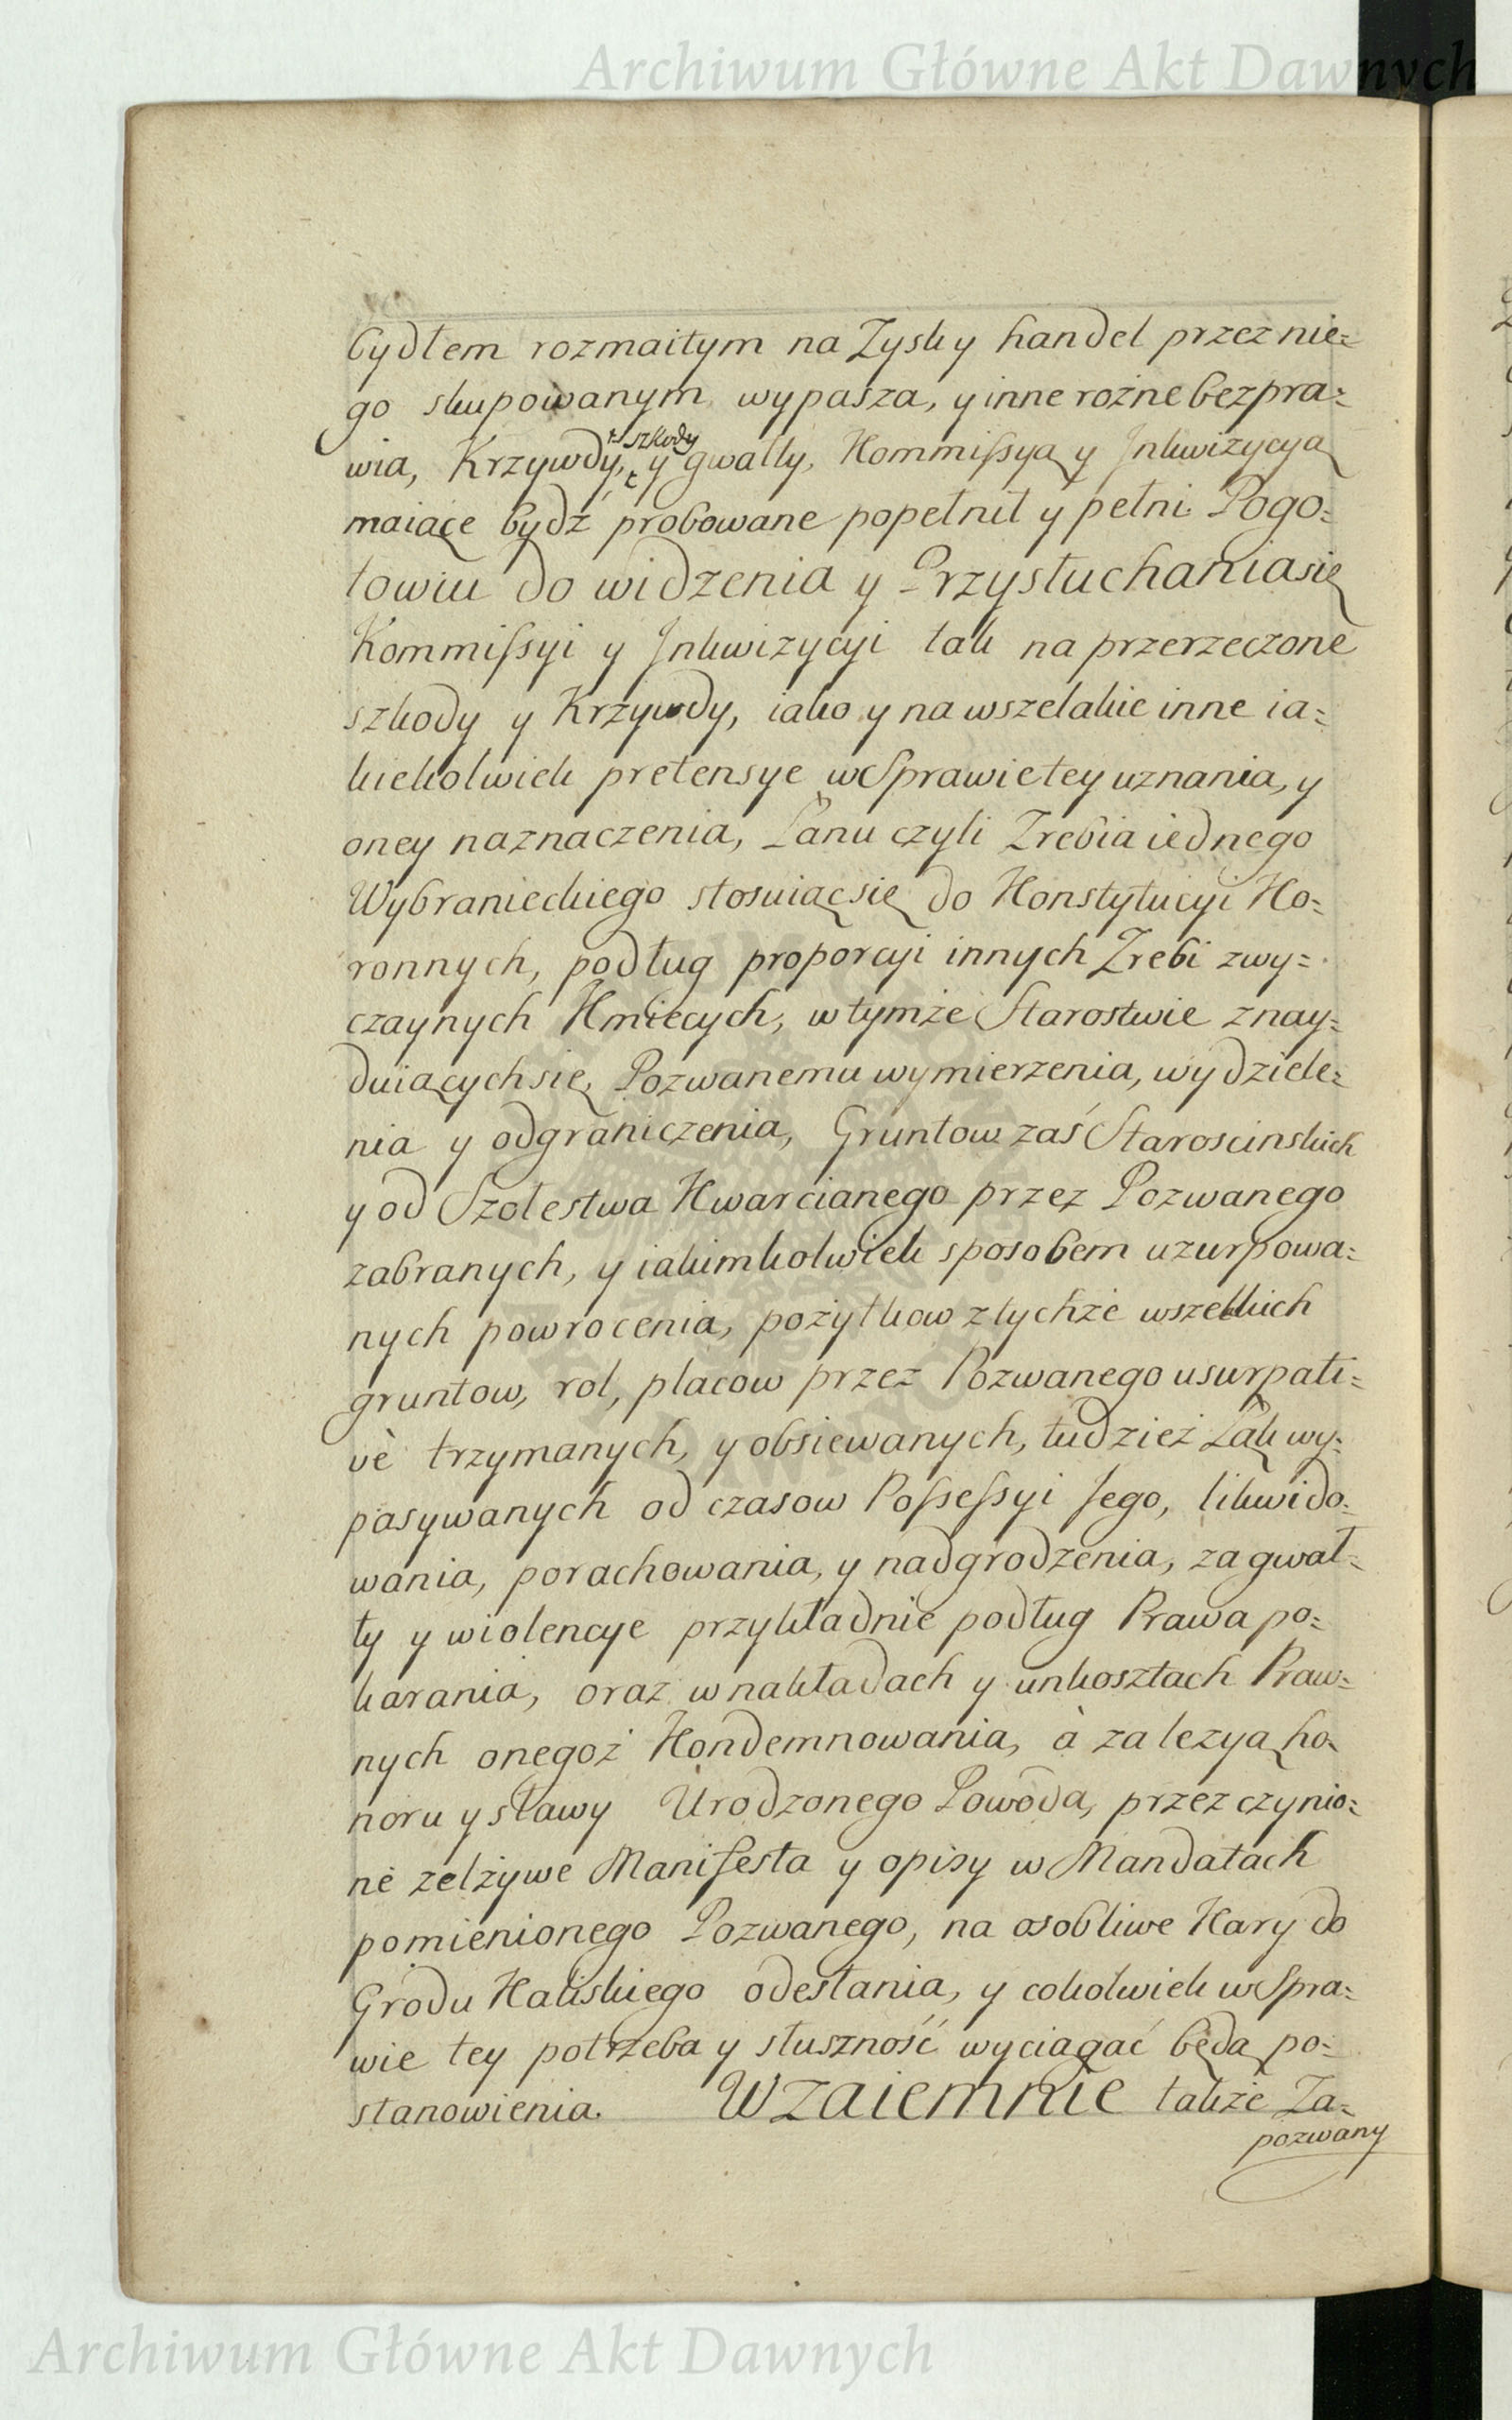 Archiwum Główne Akt Dawnych
bydłem rozmaitym na Zysk y handel przez nie=
go skupowanym wypasza, y inne rożne bezpra=
wia, Krzywdy, szkody y gwałty, Kommissyą y Inkwizycyą
maiące bydź probowane popełnił y pełni. Pogo=
towiu do widzenia y Przysłuchania się
Kommissyi y Inkwizycyi tak na przerzeczone
szkody y Krzywdy, iako y na wszelakie inne ia=
kiekolwiek pretensye w Sprawie tey uznania, y
oney naznaczenia, Łanu czyli Zrebia iednego
Wybranieckiego stosuiąc się do Konstytucyi Ko=
ronnych, podług proporcyi innych Zrebi zwy=
czaynych Kmiecych, w tymże Starostwie znay=
duiących się, Pozwanemu wymierzenia, wydziele=
nia y odgraniczenia, Gruntow zaś Staroscinskich
y od Szołestwa Kwarcianego przez Pozwanego
zabranych, y iakimkolwiek sposobem uzurpowa=
nych powrocenia, pożytkow z tychże wszelkich
gruntow, rol, placow przez Pozwanego usurpati=
vè trzymanych, y obsiewanych, tudzież Łąk wy=
pasywanych od czasow Possessyi Jego, likwido=
wania, porachowania, y nadgrodzenia, za gwał=
ty y wiolencye przykładnie podług Prawa po=
karania, oraz w nakładach y unkosztach Praw=
nych onegoż Kondemnowania, à za lezyą ho=
noru y sławy Urodzonego Powoda, przez czynio=
ne zelżywe Manifesta y opisy w Mandatach
pomienionego Pozwanego, na osobliwe Kary do
Grodu Kaliskiego odesłania, y cokolwiek w Spra=
wie tey potrzeba y słuszność wyciągać będą po=
stanowienia. Wzaiemnie także Za=
pozwany
Archiwum Główne Akt Dawnych